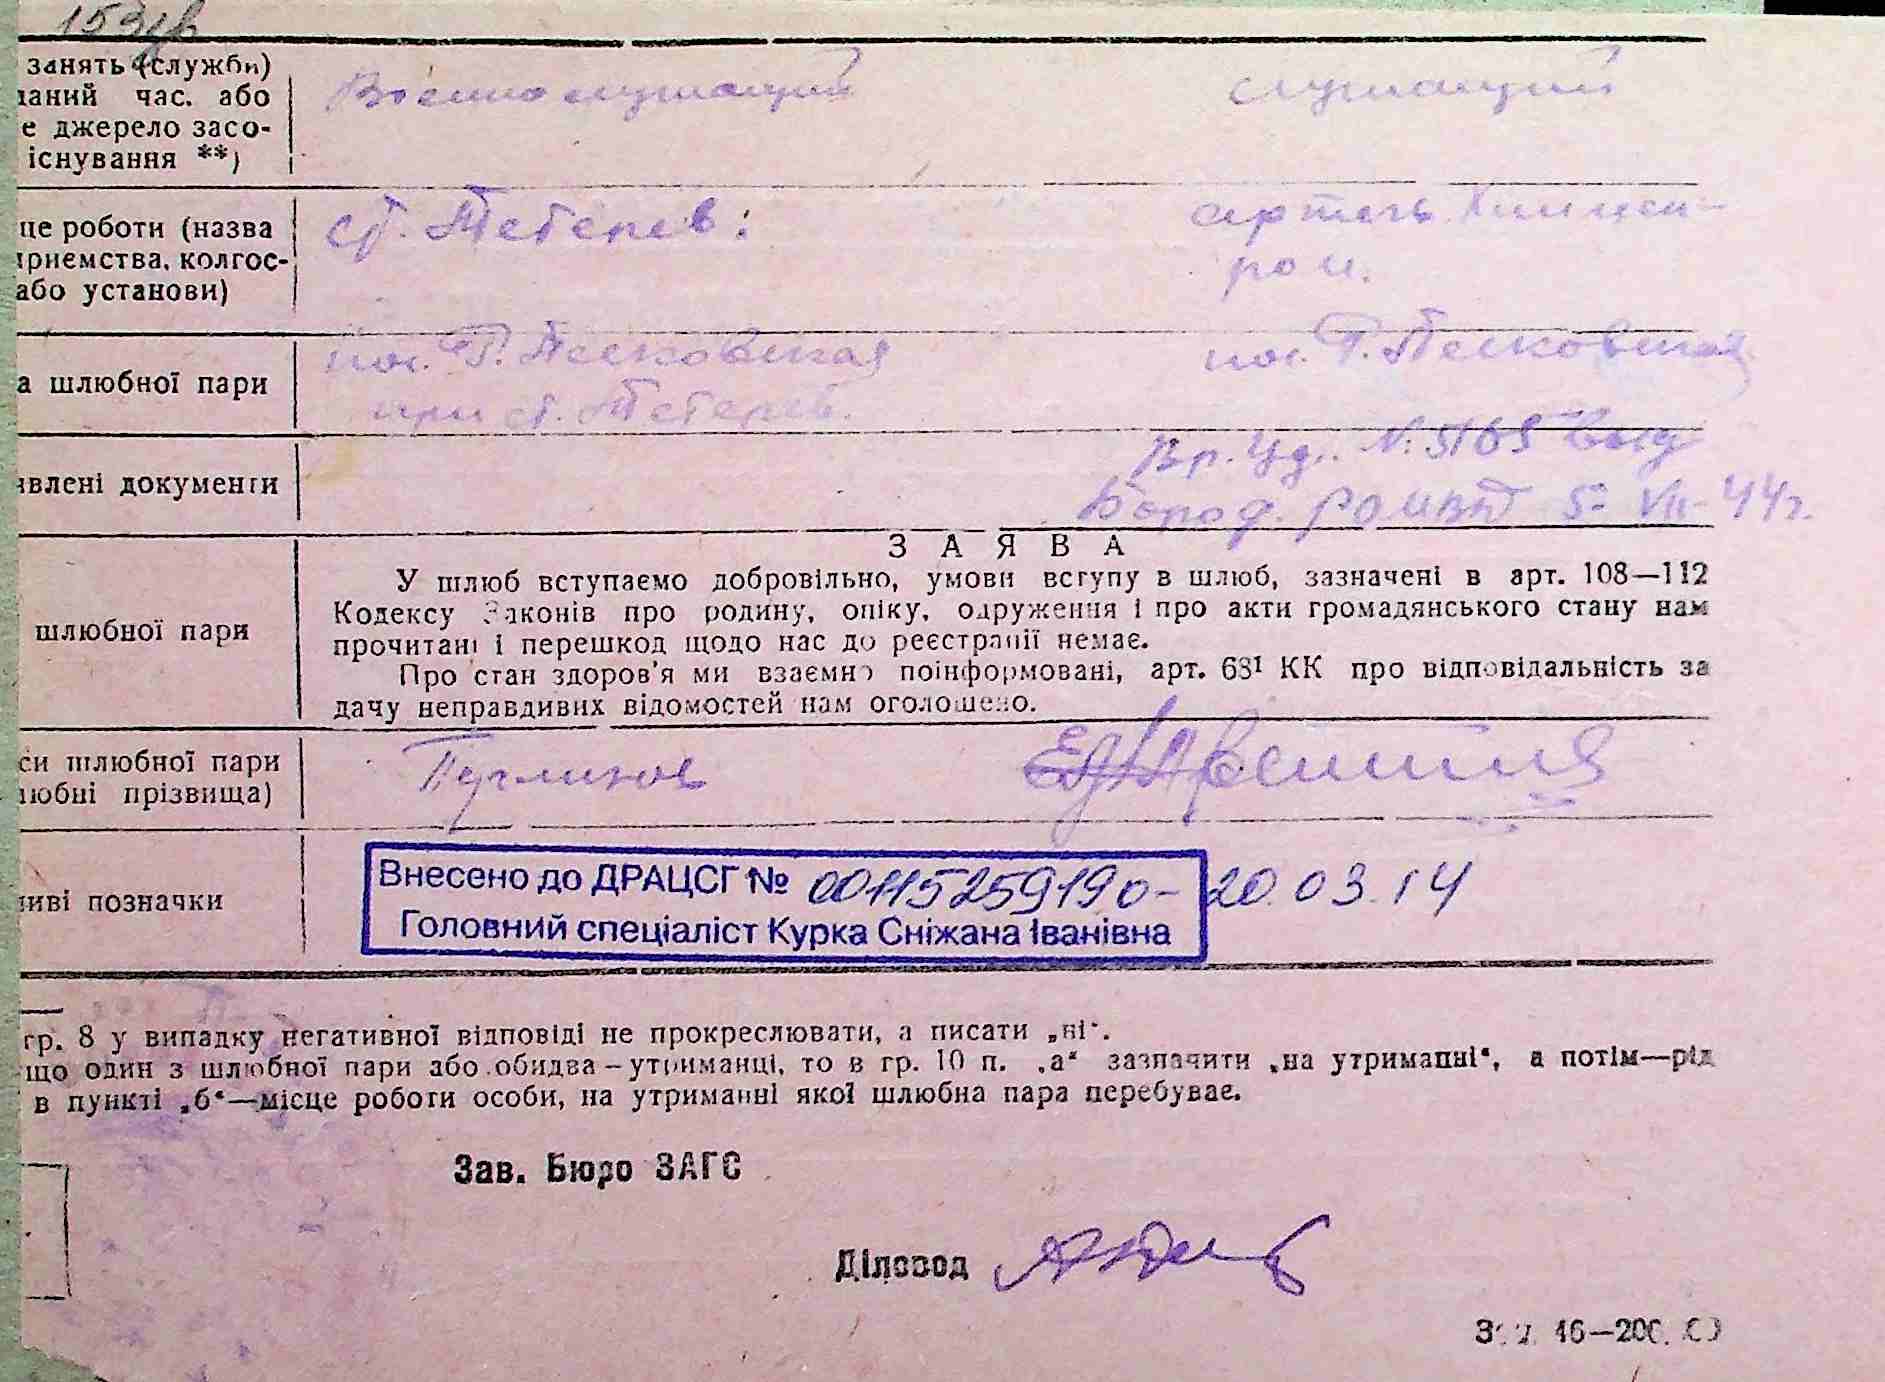 153
занять (служби)
даний час. або
е джерело засо-
існування **)
Военнослужащий
служащий
це роботи (назва
приємства, колгос-
або установи)
ст. Тетерев:
артель Химпен-
ром.
а шлюбної пари
пос. П. Песковская
при ст. Тетерев.
пос. П. Песковская
явлені документи
Вр. Уд. №. 5165 выд
Бород. РОМВД 5- VII- 44 г.
шлюбної пари
ЗАЯВА
У шлюб вступаємо добровільно, умови вступу в шлюб, зазначені в арт. 108—112
Кодексу Законів про родину, опіку, одруження і про акти громадянського стану нам
прочитані і перешкод щодо нас до реєстрації немає.
Про стан здоров'я ми взаємно поінформовані, арт. 68¹ КК про відповідальність за
дачу неправдивих відомостей нам оголошено.
си шлюбної пари
любні прізвища)
ливі позначки
Внесено до ДРАЦСГ № 00115259190- 20.03.14
Головний спеціаліст Курка Сніжана Іванівна
гр. 8 у випадку негативної відповіді не прокреслювати, а писати „ні“.
що один з шлюбної пари або обидва – утриманці, то в гр. 10 п. „а“ зазначити „на утриманні“, а потім—рід
в пункті „б“—місце роботи особи, на утриманні якої шлюбна пара перебуває.
Зав. Бюро ЗАГС
Діловод
46—200.